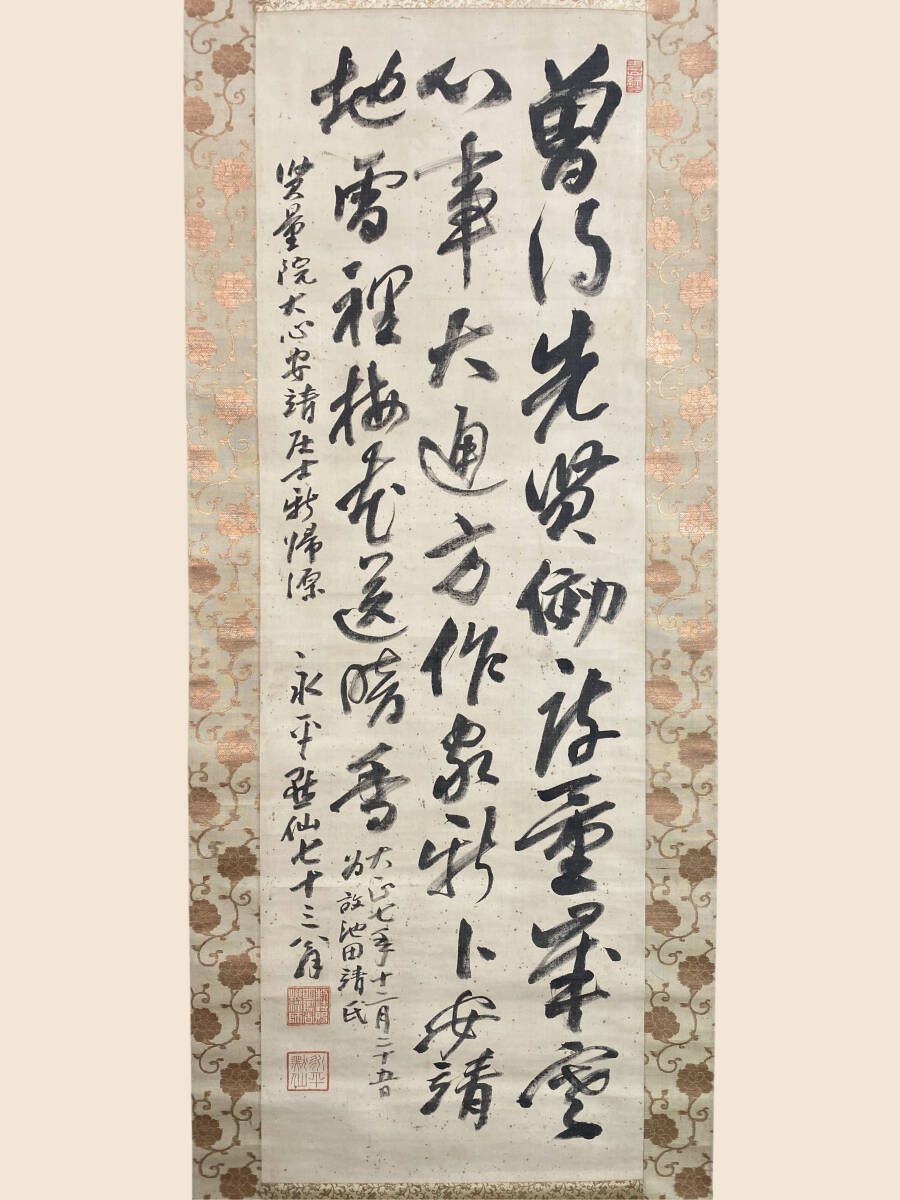 曽得先賢量雲
心事大通方作家新卜安靖
地雪裡梅花送暗香
大正七年十二月二十五日
為故池田靖氏
賢量院大心安靖居士新帰源
永平黙仙七十三翁
永平
黙仙